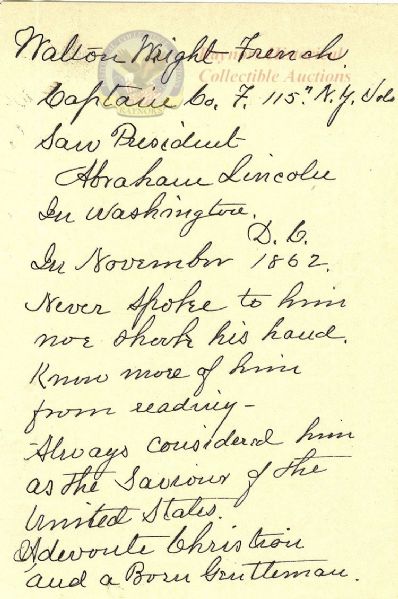 Walton Wright French.
Captain Co. F. 115" N.Y. Vols
Saw President
Abraham Lincoln
In Washington.
D.C.
In November 1862.
Never spoke to him
nor shook his hand.
Know more of him
from reading -
Always considered him
as the Saviour of the
United States.
A devoute Christian
and a Born Gentleman.
Collectible Auctions
RAYNORS